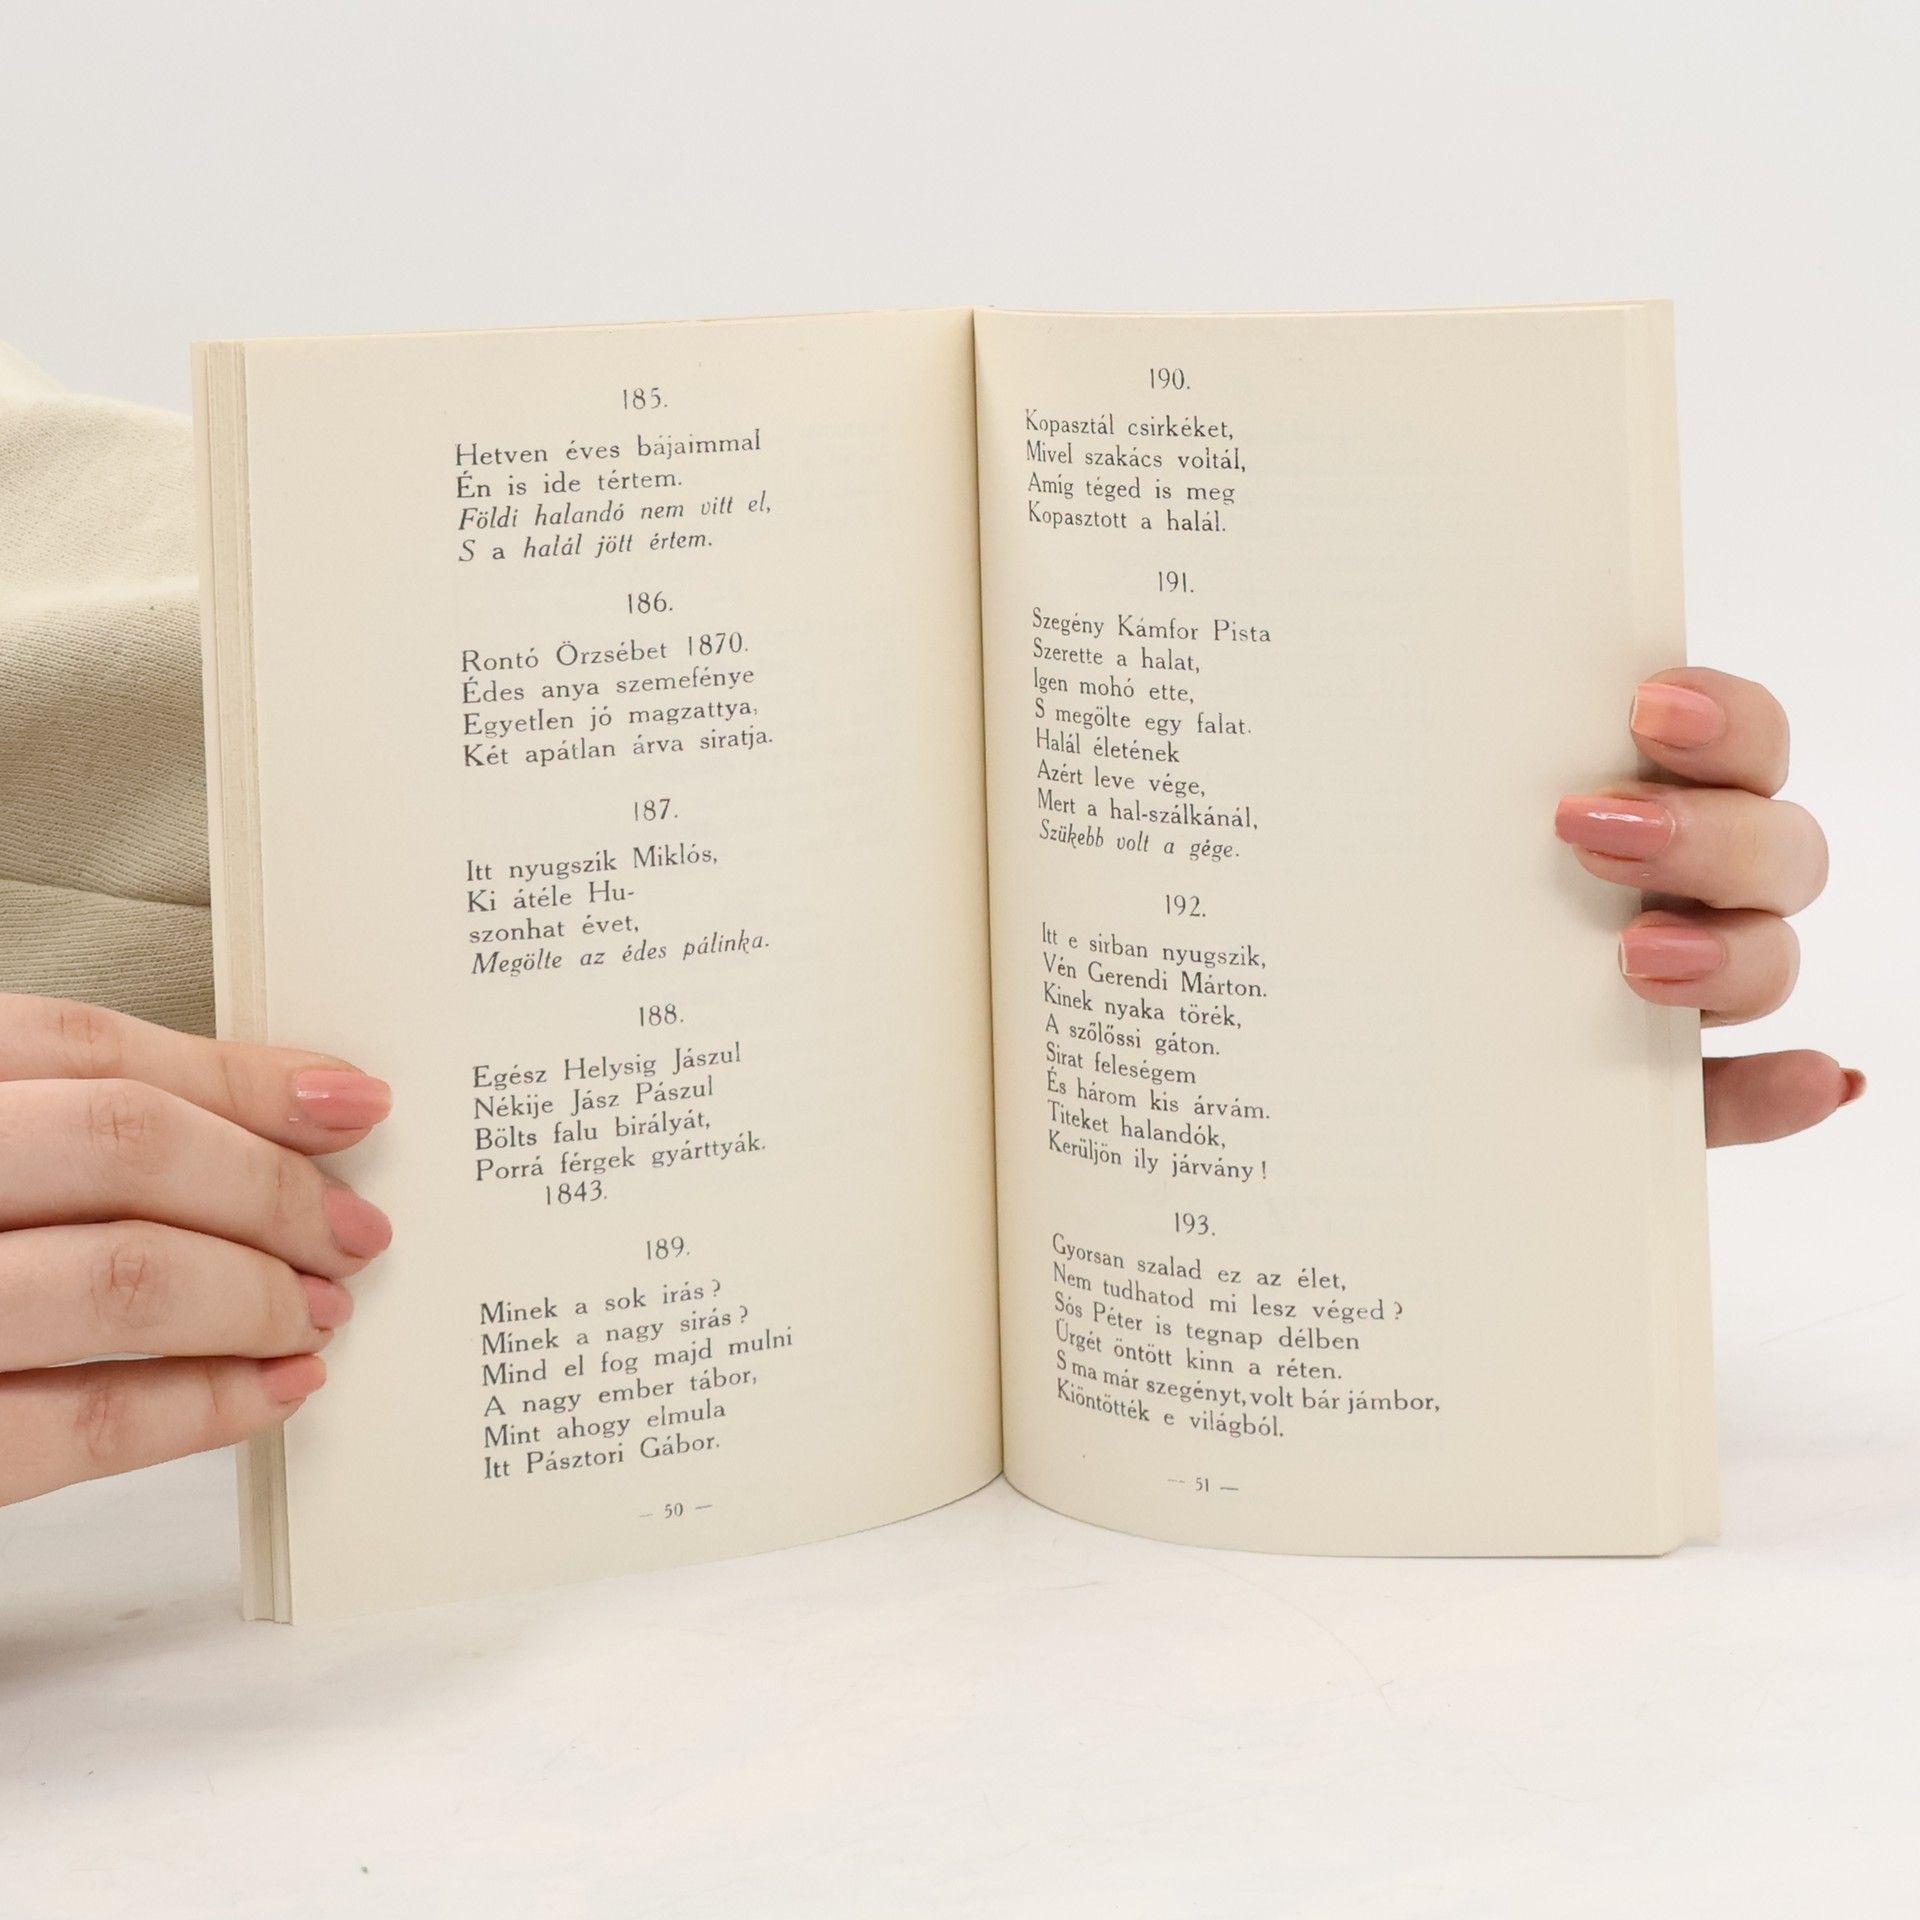 185.
Hetven éves bájaimmal
Én is ide tértem.
Földi halandó nem vitt el,
S a halál jött értem.
186.
Rontó Örzsébet 1870.
Édes anya szemefénye
Egyetlen jó magzattya,
Két apátlan árva siratja.
187.
Itt nyugszik Miklós,
Ki átéle Hu-
szonhat évet,
Megölte az édes pálinka.
188.
Egész Helysig Jászul
Nékije Jász Pászul
Bölts falu birályát,
Porrá férgek gyárttyák.
1843.
189.
Minek a sok irás?
Minek a nagy sirás?
Mind el fog majd mulni
A nagy ember tábor,
Mint ahogy elmula
Itt Pásztori Gábor.
— 50 —
190.
Kopasztál csirkéket,
Mivel szakács voltál,
Amíg téged is meg
Kopasztott a halál.
191.
Szegény Kámfor Pista
Szerette a halat,
Igen mohó ette,
S megölte egy falat.
Halál életének
Azért leve vége,
Mert a hal-szálkánál,
Szükebb volt a gége.
192.
Itt e sirban nyugszik,
Vén Gerendi Márton.
Kinek nyaka törék,
A szőlőssi gáton.
Sirat feleségem
És három kis árvám.
Titeket halandók,
Kerüljön ily járvány!
193.
Gyorsan szalad ez az élet,
Nem tudhatod mi lesz véged?
Sós Péter is tegnap délben
Ürgét öntött kinn a réten.
S ma már szegényt, volt bár jámbor,
Kiöntötték e világból.
— 51 —